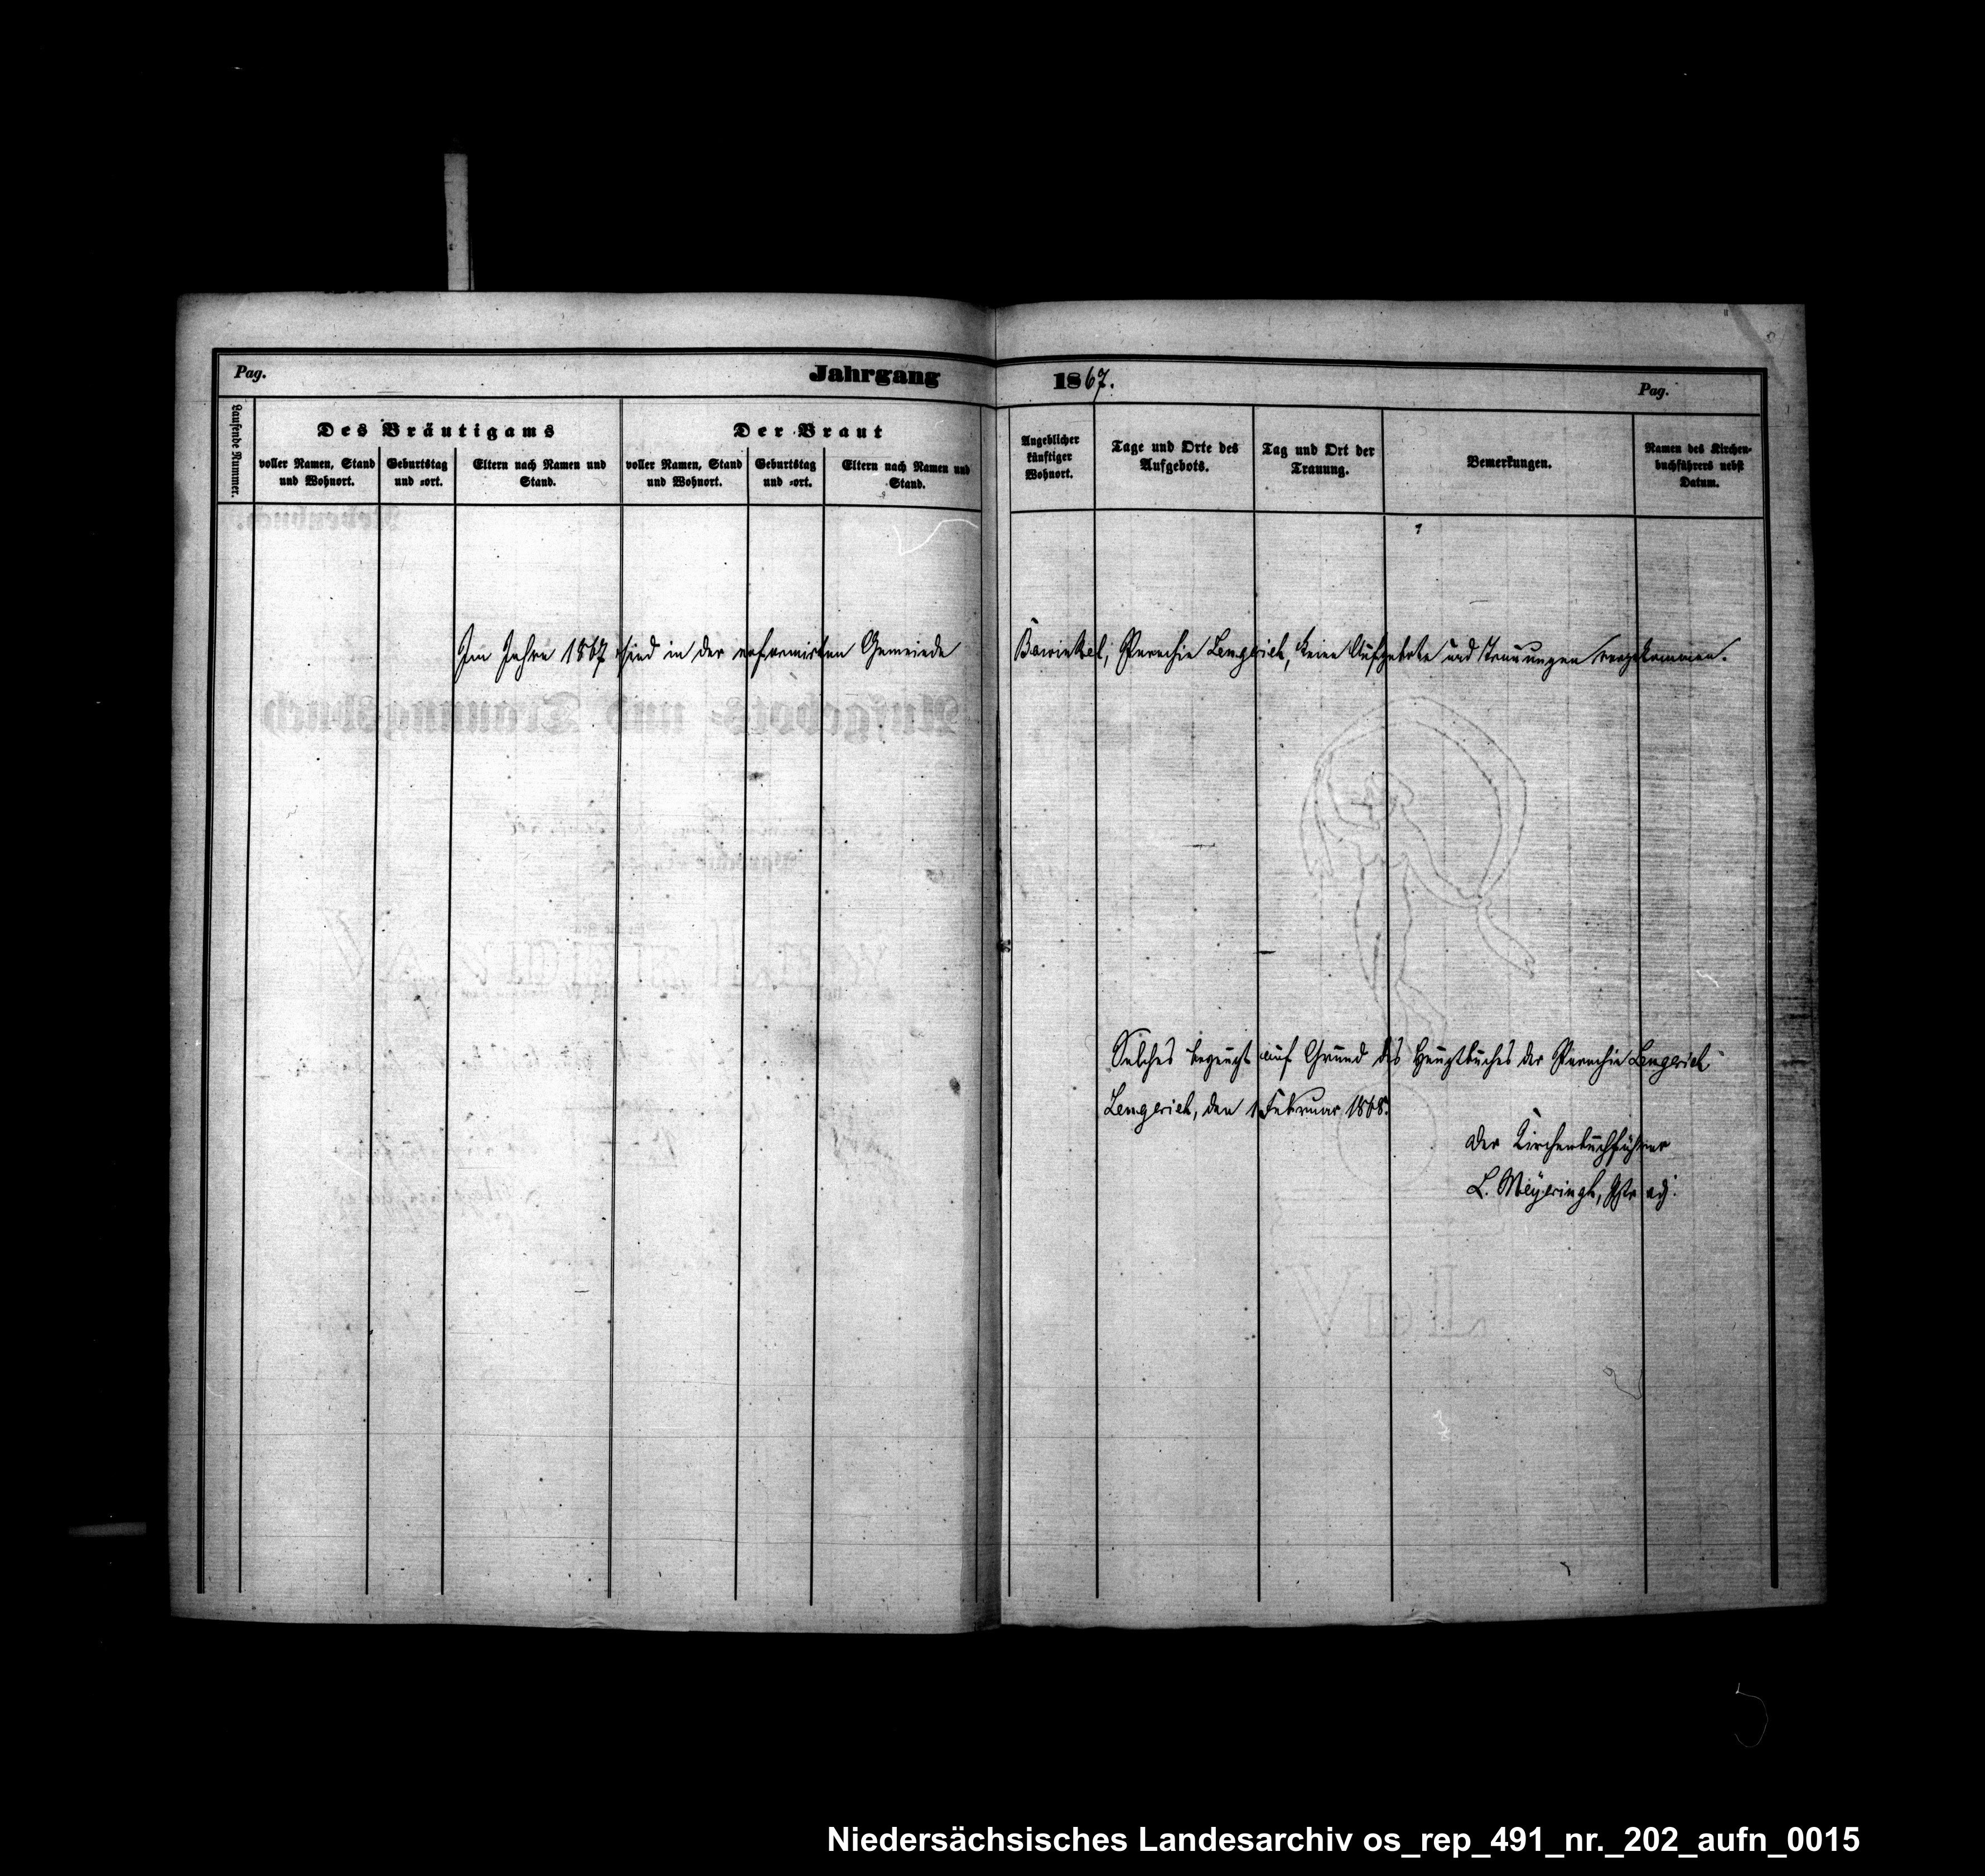 Pag.
Jahrgang 1867.
Pag.
Laufende Nummer.
Des Bräutigams
Der Braut
voller Namen, Stand
und Wohnort.
Geburtstag
und -ort.
Eltern nach Namen und
Stand.
voller Namen, Stand
und Wohnort.
Geburtstag
und -ort.
Eltern nach Namen und
Stand.
Angeblicher
künftiger
Wohnort.
Tage und Orte des
Aufgebots.
Tag und Ort der
Trauung.
Bemerkungen.
Namen des Kirchen-
buchführers nebst
Datum.
Im Jahre 1867 sind in der reformirten Gemeinde Bawinkel, Parochie Lengerich, keine Aufgebote und Trauungen vorgekommen.
Solches bezeugt auf Grund des Hauptbuches der Parochie Lengerich
Lengerich, den 1 Februar 1868.
Der Kirchenbuchführer
L. Meyeringh, Pstr adj.
Nebenbuch.
Aufgebots- und Trauungsbuch
Niedersächsisches Landesarchiv os_rep_491_nr._202_aufn_0015